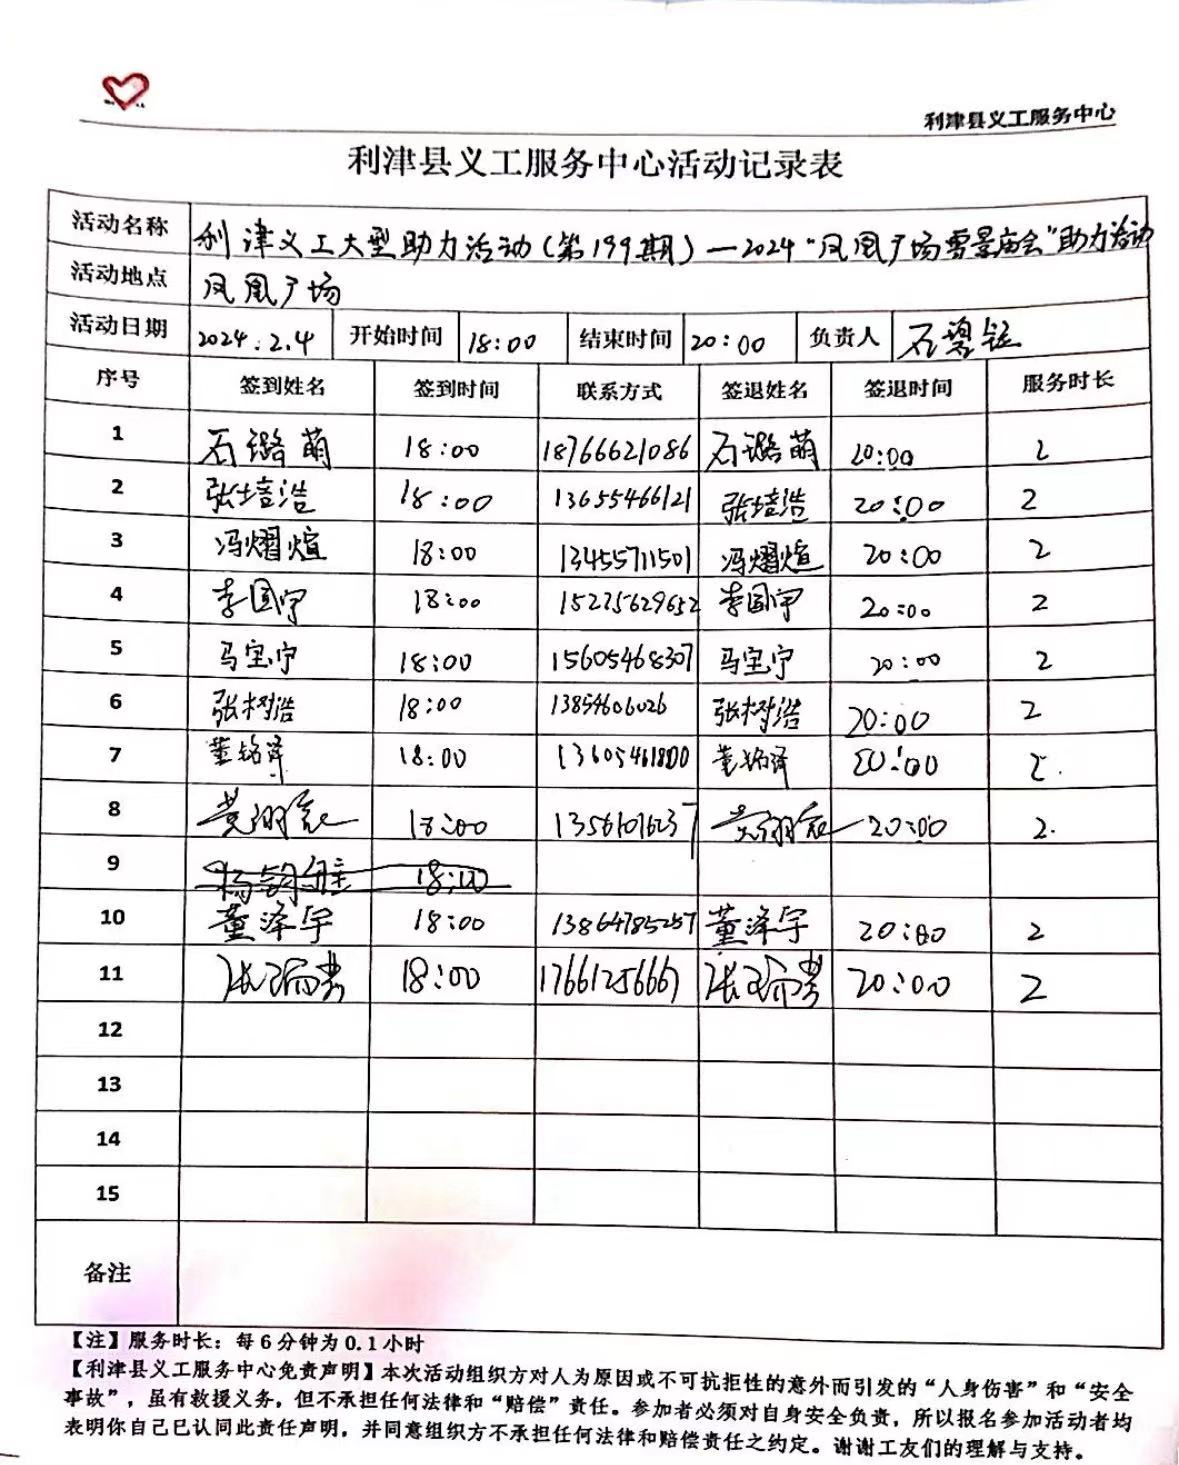 利津县义工服务中心
利津县义工服务中心活动记录表
活动名称 利津义工大型助力活动(第199期)—2024“凤凰广场雪景庙会”助力活动
活动地点 凤凰广场
活动日期 2024.2.4 开始时间 18:00 结束时间 20:00 负责人 石
序号 签到姓名 签到时间 联系方式 签退姓名 签退时间 服务时长
1 石璐萌 18:00 18766621086 石璐萌 20:00 2
2 张培浩 18:00 13655466121 张培浩 20:00 2
3 冯熠煊 18:00 13455711501 冯熠煊 20:00 2
4 李国宁 18:00 15225629652 李国宁 20:00 2
5 马宝宁 18:00 15605468307 马宝宁 20:00 2
6 张树浩 18:00 13854606026 张树浩 20:00 2
7 董铭泽 18:00 董铭泽 20:00 2.
8 18:00 20:00 2.
9 18:00
10 董泽宇 18:00 13864785257 董泽宇 20:00 2
11 18:00 17661256667 20:00 2
12
13
14
15
备注
【注】服务时长：每6分钟为0.1小时
【利津县义工服务中心免责声明】本次活动组织方对人为原因或不可抗拒性的意外而引发的“人身伤害”和“安全
事故”，虽有救援义务，但不承担任何法律和“赔偿”责任。参加者必须对自身安全负责，所以报名参加活动者均
表明你自己已认同此责任声明，并同意组织方不承担任何法律和赔偿责任之约定。谢谢工友们的理解与支持。